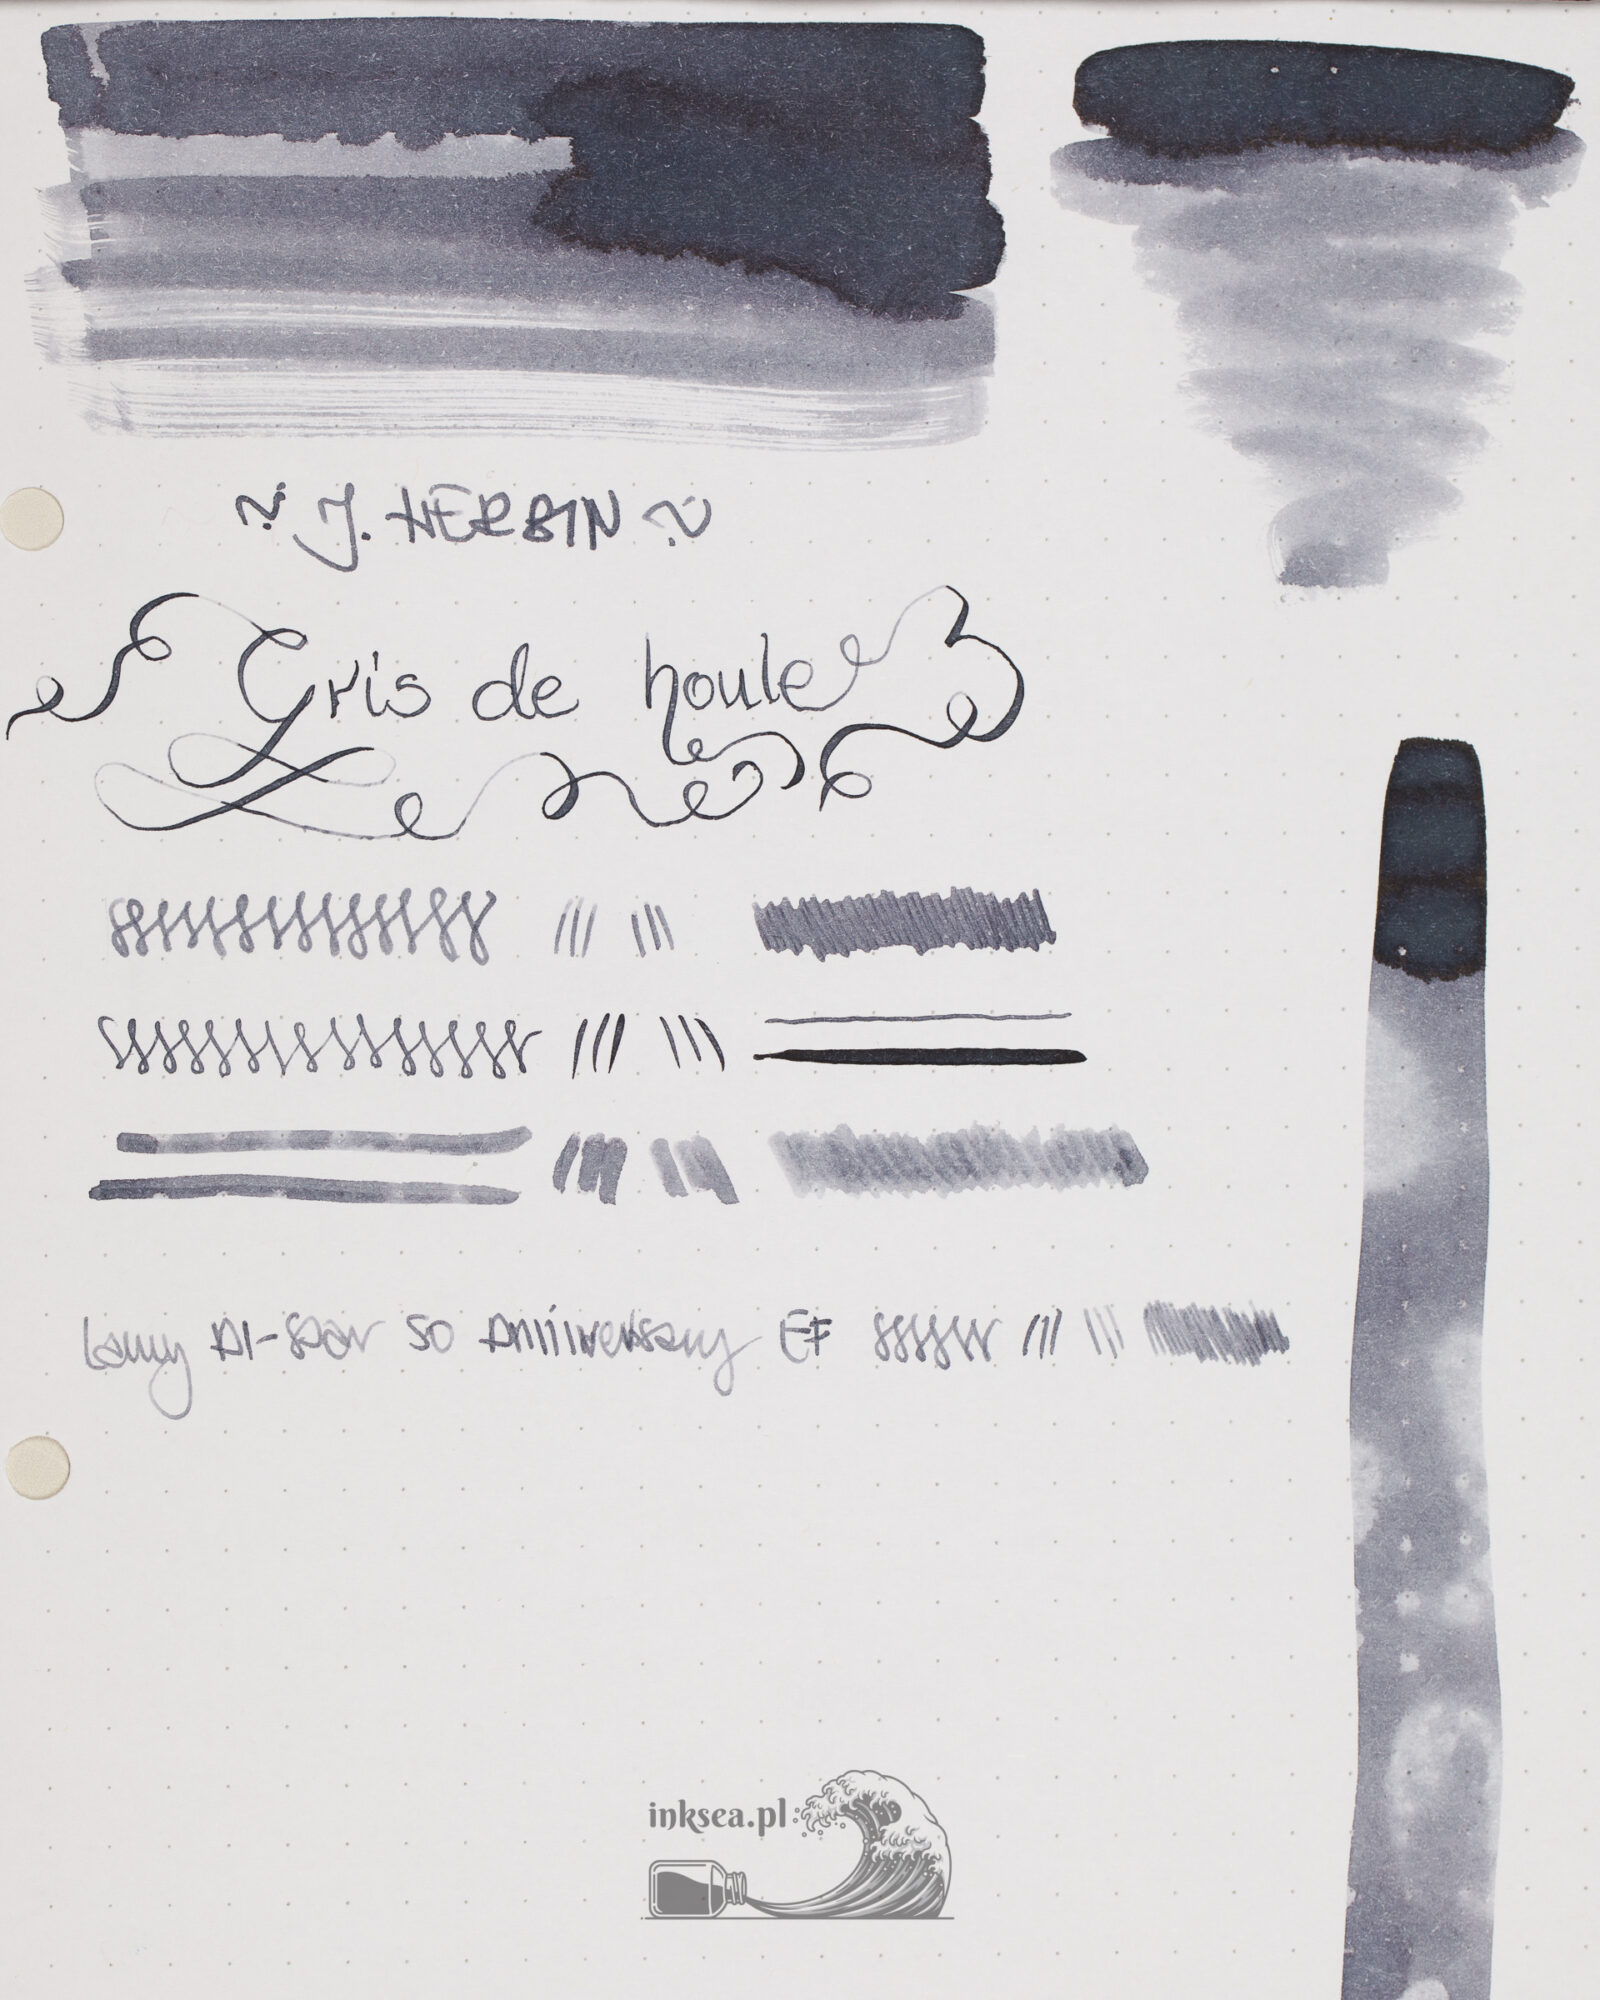 ~ J. HERBIN ~
Gris de houle
Lamy Al-Star 50 Anniversary EF
inksea.pl